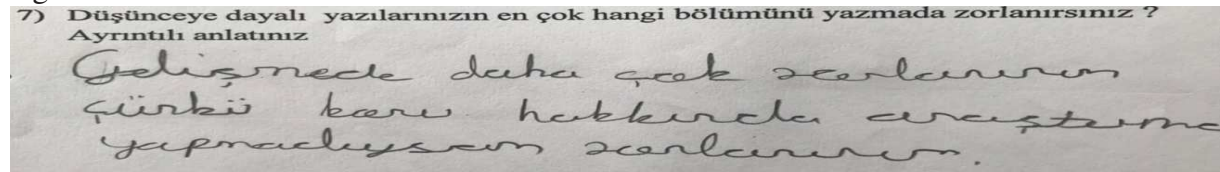 7) Düşünceye dayalı yazılarınızın en çok hangi bölümünü yazmada zorlanırsınız ?
Ayrıntılı anlatınız
Gelişmede daha çok zorlanırım
çünkü konu hakkında araştırma
yapmadıysam zorlanırım.